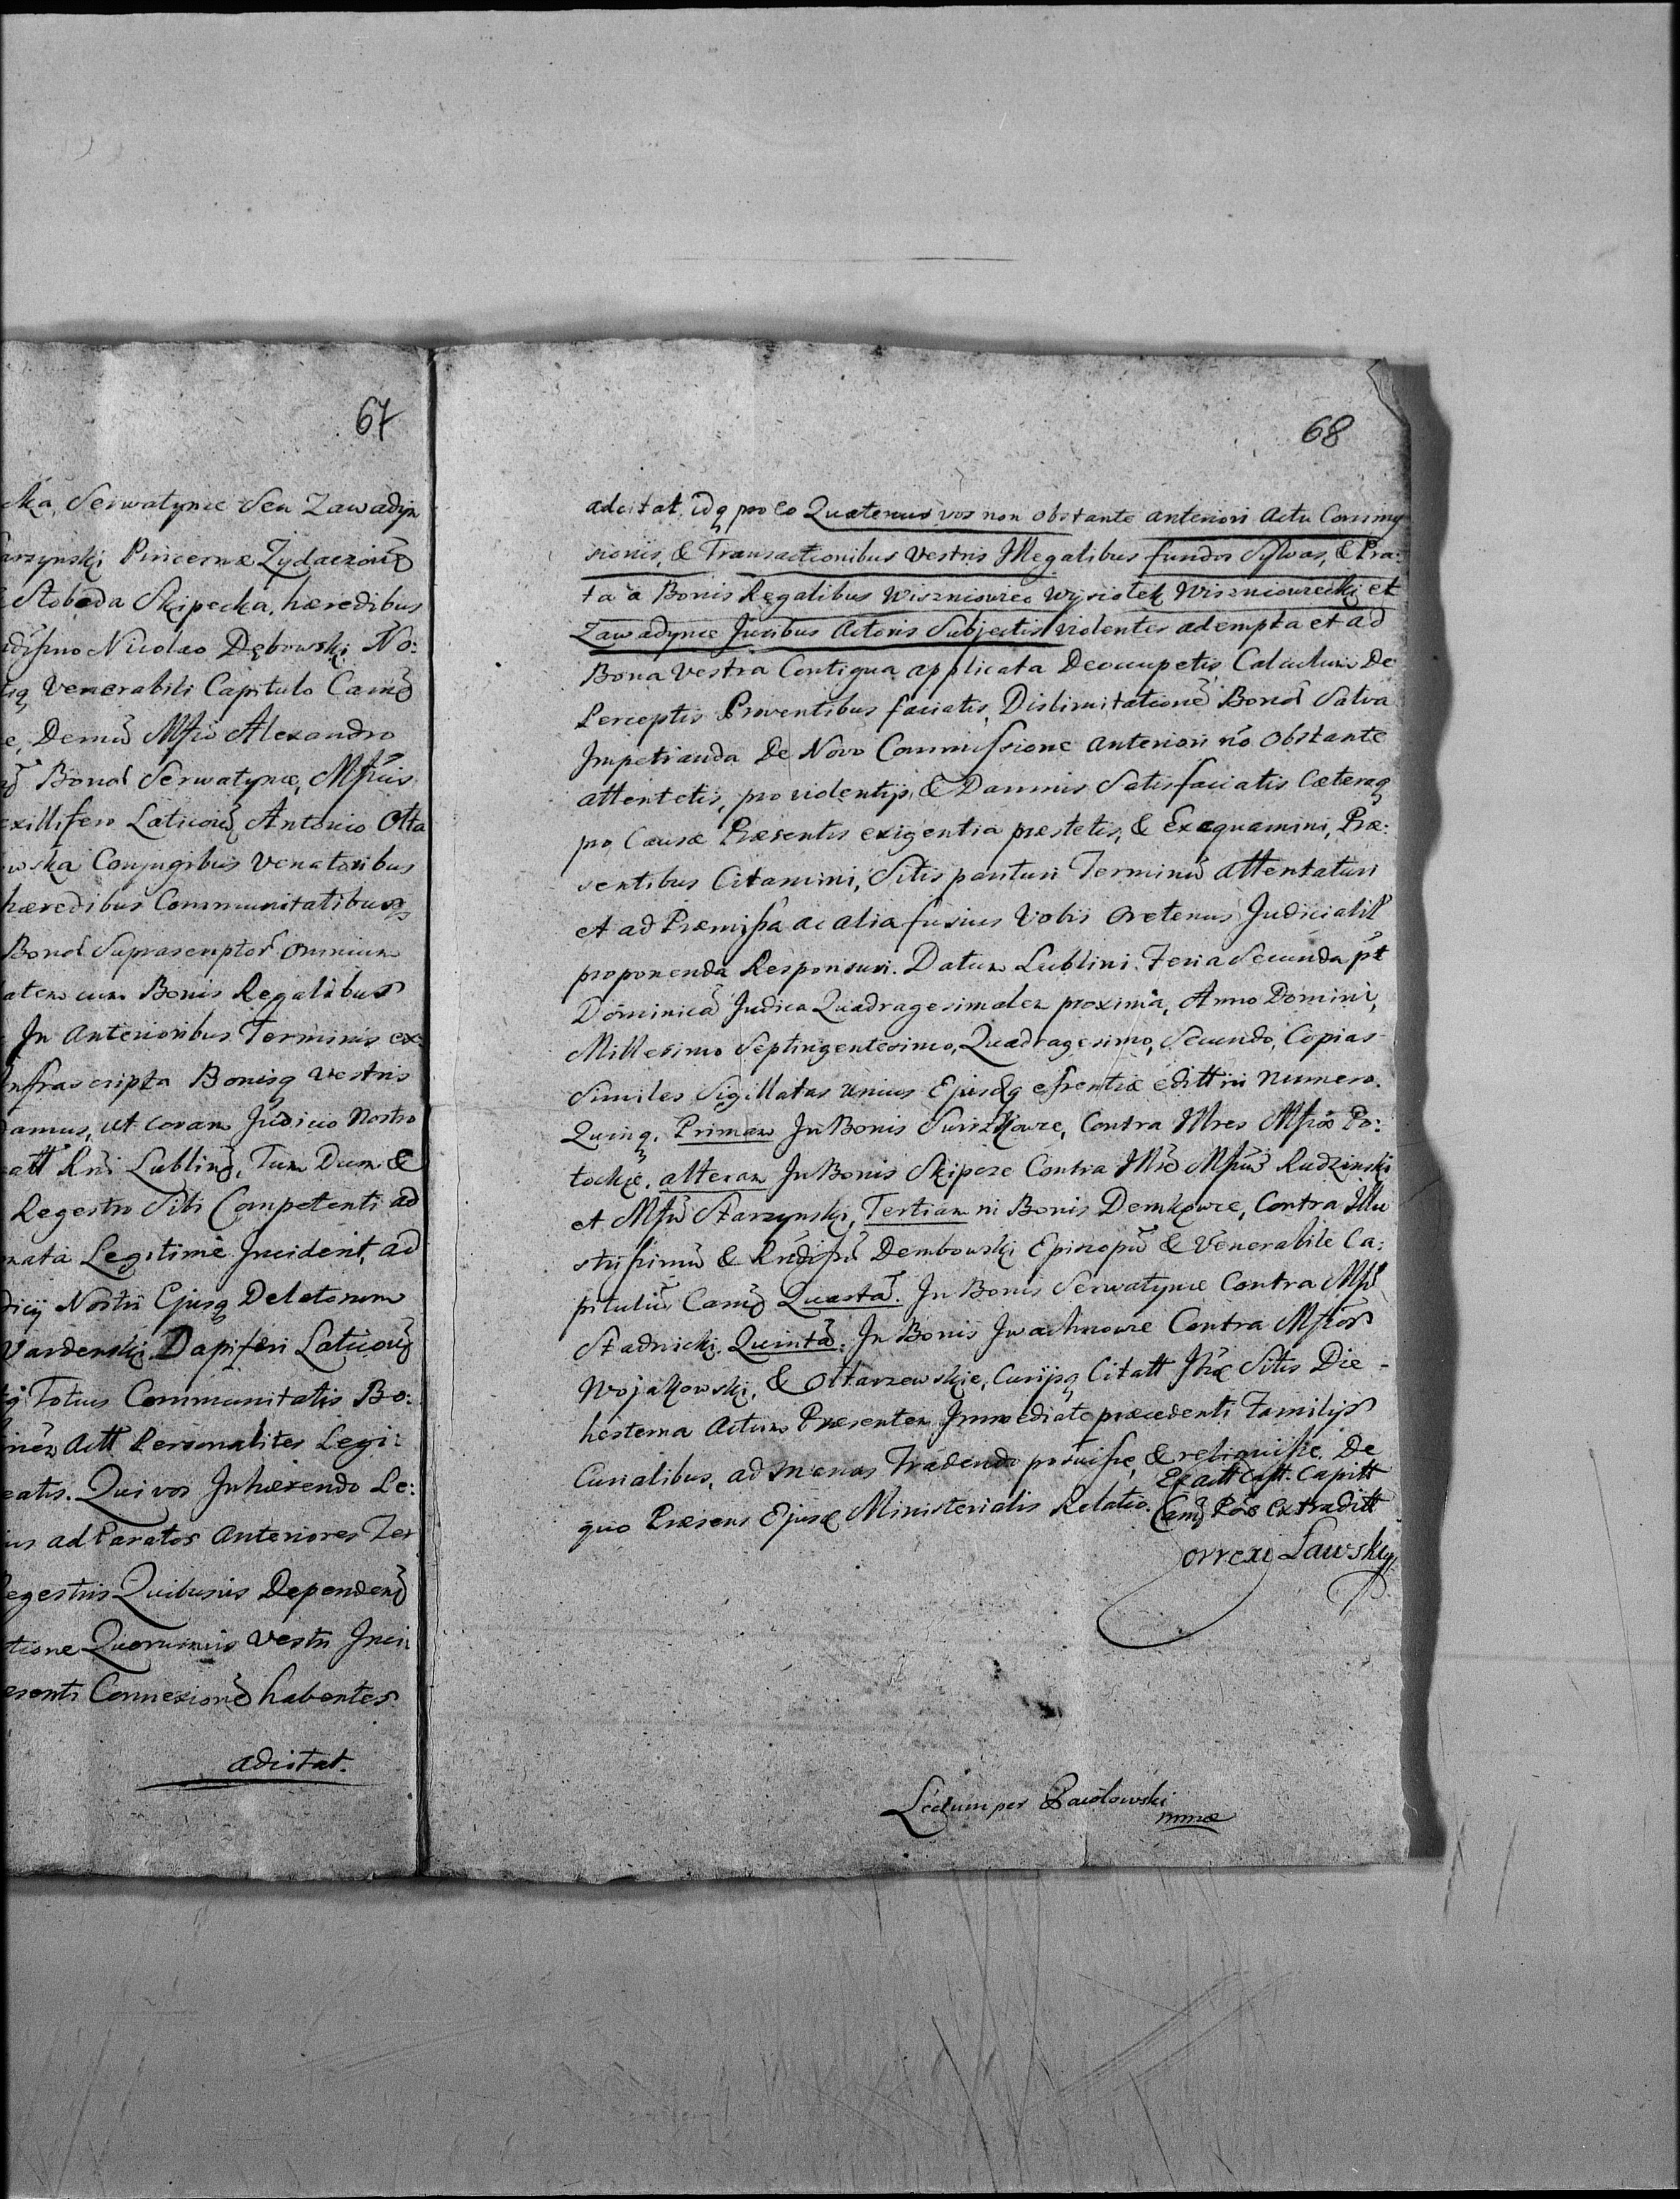 67
cka, Serwatynce Seu Zawadyn
arzynski Pincernæ Zydaczoien̄
Stoboda Skipecka, hæredibus
Nicolao Dębowski No:
Venerabili Capitulo Cam̄
e, Demū Mfco Alexandro
Bonoŕ Serwatynce, Mficis
exillifero Laticoien̄ Antonio Otta
wska Conjugibus Venatoribus
hæredibus Communitatibusq
Bonoŕ Suprascriptoŕ omnium
atem cum Bonis Regalibus
In Anterioribus Terminis ex:
nfrascripta Bonisq Vestris
damus, ut coram Judicio Nostro
att Rni Lublin̄, Tum Dum &
Regestro Sibi Competenti ad
nata Legitime Inciderit, ad
dicij Nostri Ejusq Delatorum
Vardenski Dapiferi Laticoien̄
Totius Communitatis Bo:
Actt Personaliter Legi:
eatis. Qui vos Inhærendo Le:
us ad Paratos Anteriores Ter
egestris Quibusvis Dependen̄
tione Quorumvis Vestri Juri
esenti Connexionē habentes
adcitat.
68
adcitat, idq pro eo Quatenus vos non obstante anteriori Actu Commis
sionis, & Transactionibus Vestris Illegalibus fundos Sylvas, & Pra:
ta à Bonis Regalibus Wiszniowiec Wysiolek Wiszniowiecki et
Zawadynce Juribus Actoris Subjectis violenter adempta et ad
Bona Vestra Contigua applicata Deoccupetis, Calculum De
Perceptis Proventibus faciatis, Dislimitationē Bonoŕ Salva
Impetranda De Novo Commissione anteriori nō Obstante
attentetis, pro violentijs & Damnis Satisfaciatis Cæteraq
pro Causæ Præsentis exigentia præstetis, & Exequamini, Præ:
sentibus Citamini, Sitis parituri Terminū attentaturi
et ad Præmissa ac alia fusius Vobis Oretenus Judicialiŕ
proponenda Responsuri. Datum Lublini. Feria Secunda pst
Dominicā Judica Quadragesimalem proxima, Anno Domini,
Millesimo Septingentesimo, Quadragesimo, Secundo, Copias
Similes Sigillatas unius Ejusdq essentiæ editt in Numero
Quinq. Primam In Bonis Contra Illres Mfcos Po:
tockie. alteram In Bonis Skipcze Contra Mfcū Rudzinski
et Mfcū Starzynski, Tertiam in Bonis Demkowce, Contra Illu
strissimū & Rndissū Dembowski Episcopū & Venerabile Ca:
pitulū Cam̄ Quartā. In Bonis Serwatynce Contra Mfcū
Stadnicki. Quintā: In Bonis Iwachnowce Contra Mfcos
Wojakowski, & Ottarzewskie, Curijsq Citatt Sitis Die
hesterna Actum Præsentem Immediate præcedenti Familijs
Curialibus, ad Manus Tradendo posuisse, & reliquisse. De
quo Præsens Ejusd Ministerialis Relatio.
Ex actt Castt. Capitt
Cam̄ Pod: extraditt
Correxi Lawsky
Lectum per Pawlowski
mma